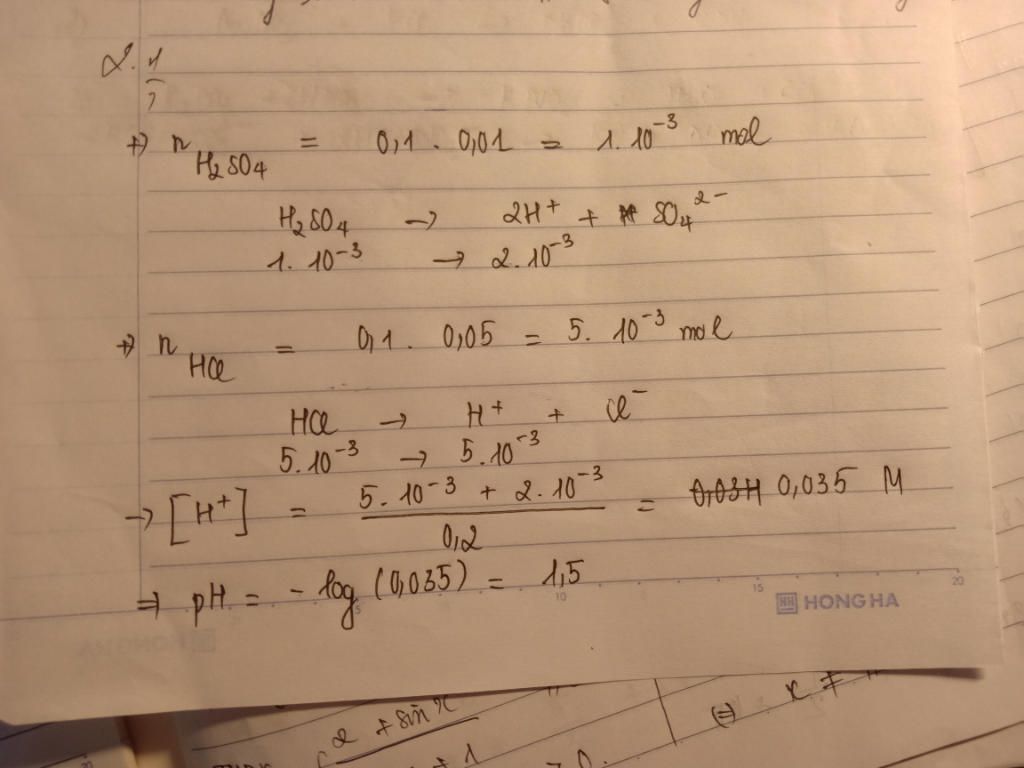 2.
+) n H₂SO₄ = 0,1 . 0,01 = 1.10⁻³ mol
H₂SO₄ → 2H⁺ + SO₄²⁻
1.10⁻³ → 2.10⁻³
+) n HCl = 0,1 . 0,05 = 5.10⁻³ mol
HCl → H⁺ + Cl⁻
5.10⁻³ → 5.10⁻³
→ [H⁺] = (5.10⁻³ + 2.10⁻³) / 0,2 = 0,035 M
⇒ pH = - log (0,035) = 1,5
5 10 15 20
HH HONG HA
2 + sin x
+ 1
(=) x ≠